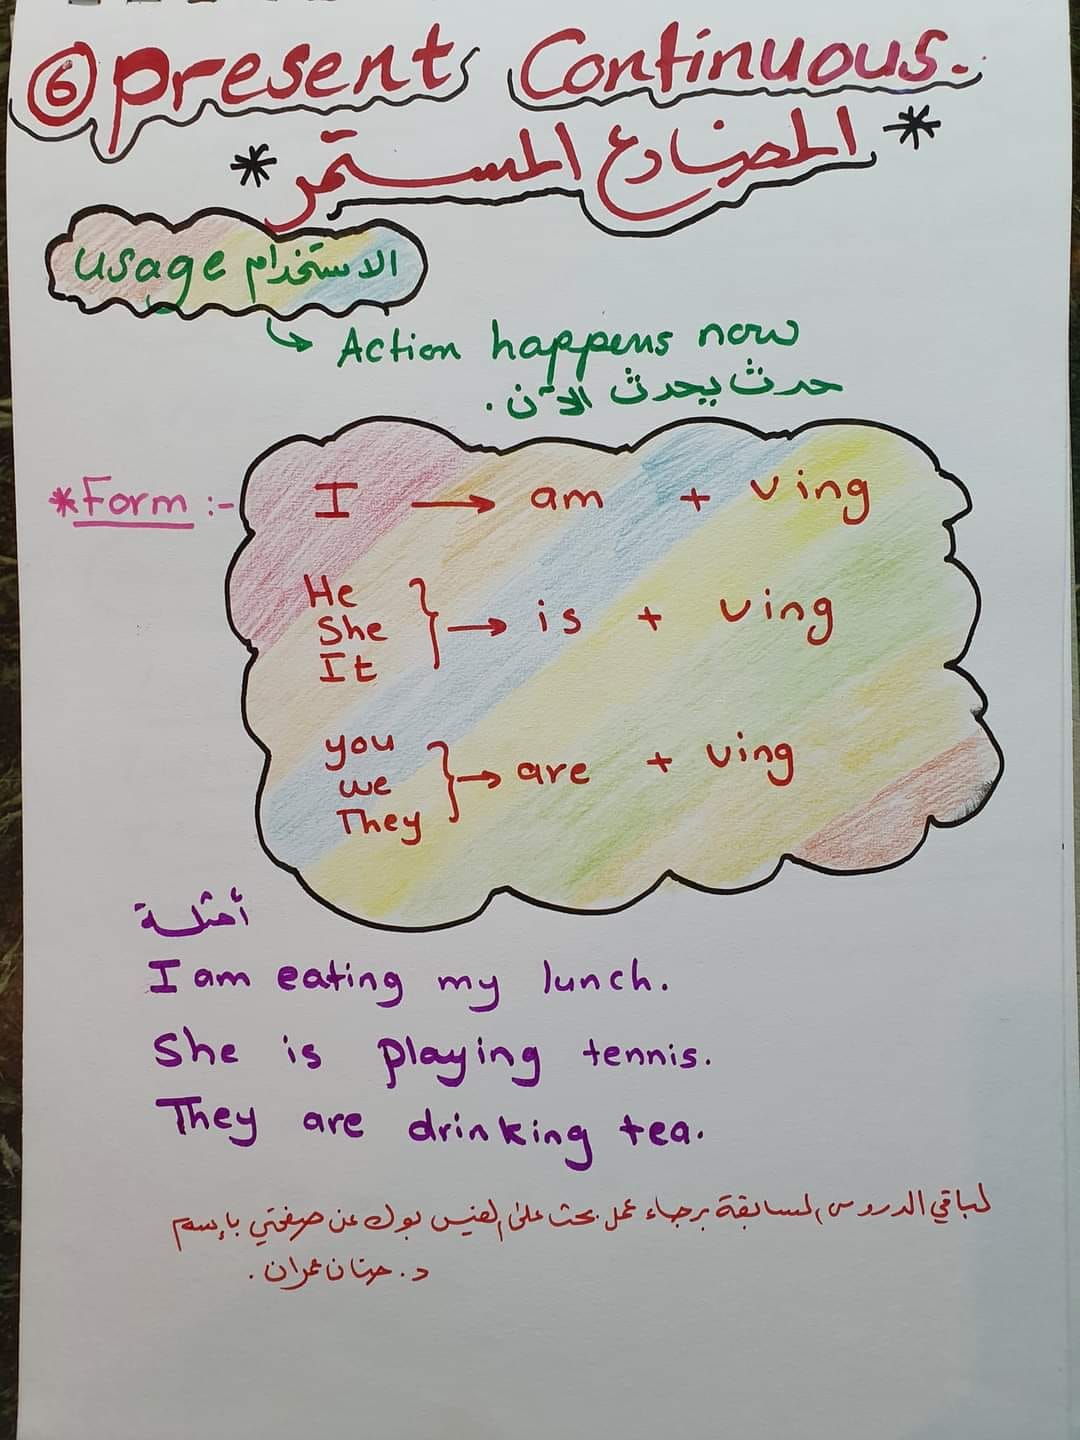 ⑥ present Continuous.
* المضارع المستمر *
usage الاستخدام
↳ Action happens now
حدث يحدث الآن.
*Form :-
I → am + ving
He
She
It
} → is + ving
you
we
They
} → are + ving
أمثلة
I am eating my lunch.
She is playing tennis.
They are drinking tea.
لباقي الدروس السابقة برجاء عمل بحث على الفيس بوك عن صفحتي بإسم
د. حنان عمران.